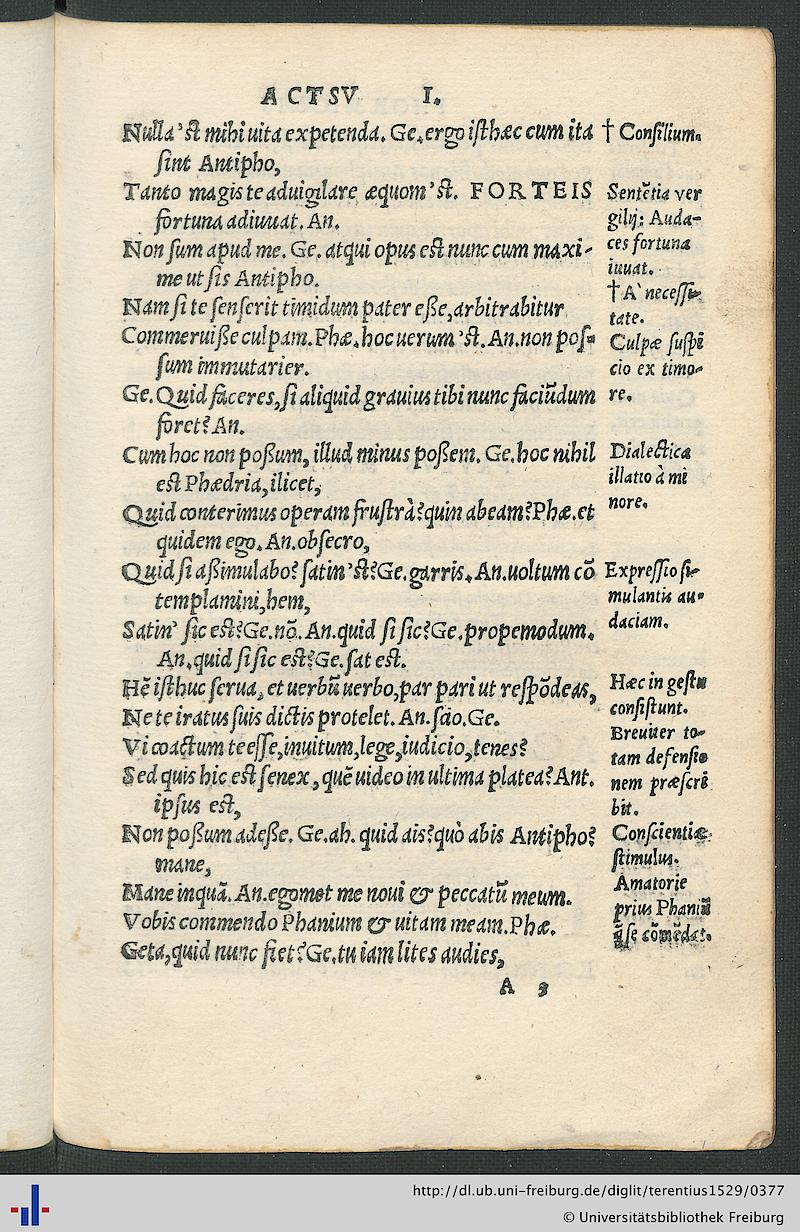 ACTSV I.
Nulla 'st mihi uita expetenda. Ge. ergo isthæc cum ita
sint Antipho,
Tanto magis te aduigilare æquom 'st. FORTEIS
fortuna adiuuat. An.
Non sum apud me. Ge. atqui opus est nunc cum maxi-
me ut sis Antipho.
Nam si te senserit timidum pater eße, arbitrabitur
Commeruiße culpam. Phæ. hoc uerum 'st. An. non pos-
sum immutarier.
Ge. Quid faceres, si aliquid grauius tibi nunc faciūdum
foret? An.
Cum hoc non poßum, illud minus poßem. Ge. hoc nihil
est Phædria, ilicet,
Quid conterimus operam frustrà? quin abeam? Phæ. et
quidem ego. An. obsecro,
Quid si aßimulabo? satin 'st? Ge. garris. An. uoltum cō
templamini, hem,
Satin' sic est? Ge. nō. An. quid si sic? Ge. propemodum.
An. quid si sic est? Ge. sat est.
Hē isthuc serua, et uerbū uerbo, par pari ut respōdeas,
Ne te iratus suis dictis protelet. An. scio. Ge.
Vi coactum te esse, inuitum, lege, iudicio, tenes?
Sed quis hic est senex, quē uideo in ultima platea? Ant.
ipsus est,
Non poßum adeße. Ge. ah. quid ais? quò abis Antipho?
mane,
Mane inquā. An. egomet me noui & peccatū meum.
Vobis commendo Phanium & uitam meam. Phæ.
Geta, quid nunc fiet? Ge. tu iam lites audies,
A 3
† Consilium.
Sentētia ver
gilij: Auda-
ces fortuna
iuuat.
† A` necessi-
tate.
Culpæ suspi
cio ex timo-
re.
Dialectica
illatio à mi
nore.
Expressio si-
mulantis au-
daciam.
Hæc in gestu
consistunt.
Breuiter to-
tam defensio
nem præscri
bit.
Conscientiæ
stimulus.
Amatorie
prius Phaniū
q̄; se cōmēdat.
http://dl.ub.uni-freiburg.de/diglit/terentius1529/0377
© Universitätsbibliothek Freiburg